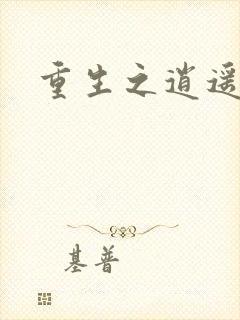 重生之逍遥
基普